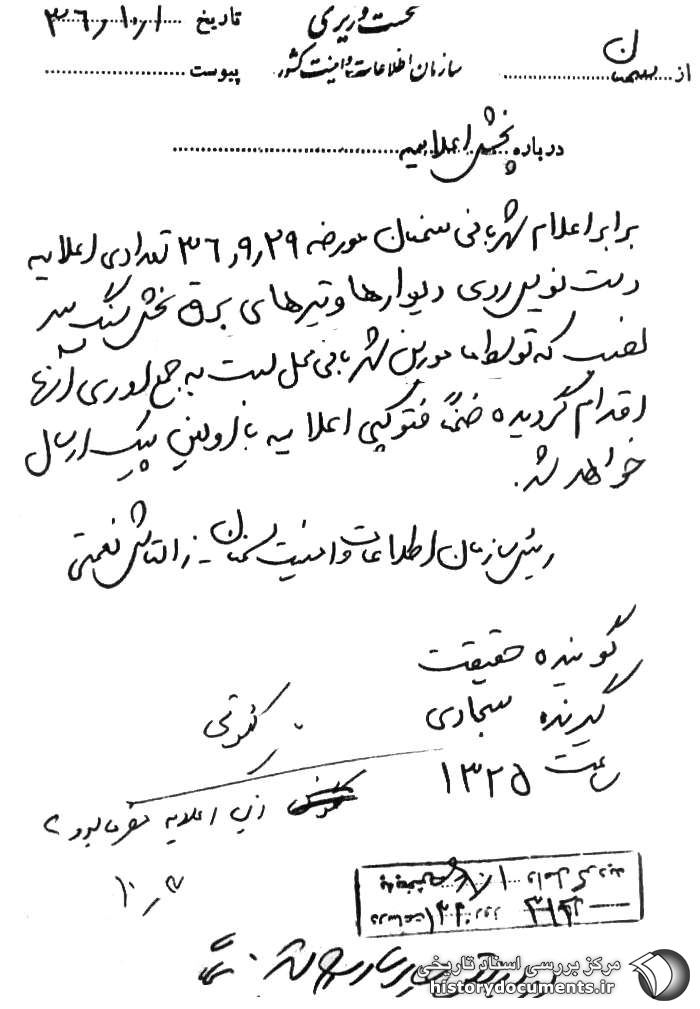 نخست وزیری
تاریخ ۳۶/۱۰/۱
از سمنان
سازمان اطلاعات و امنیت کشور
پیوست
درباره پخش اعلامیه
برابر اعلام شهربانی سمنان مورخه ۳۶/۹/۲۹ تعدادی اعلامیه
دست نویس روی دیوارها و تیرهای برق بخش سنگسر
نصب که توسط مامورین شهربانی محل نسبت به جمع آوری آنها
اقدام گردیده ضمناً فتوکپی اعلامیه با اولین پیک ارسال
خواهد شد.
رئیس سازمان اطلاعات و امنیت سمنان - نعمتی
گوینده حقیقت
گیرنده سجادی
ساعت ۱۳۲۵
از این اعلامیه
۱۰/۲
مرکز بررسی اسناد تاریخی
historydocuments.ir